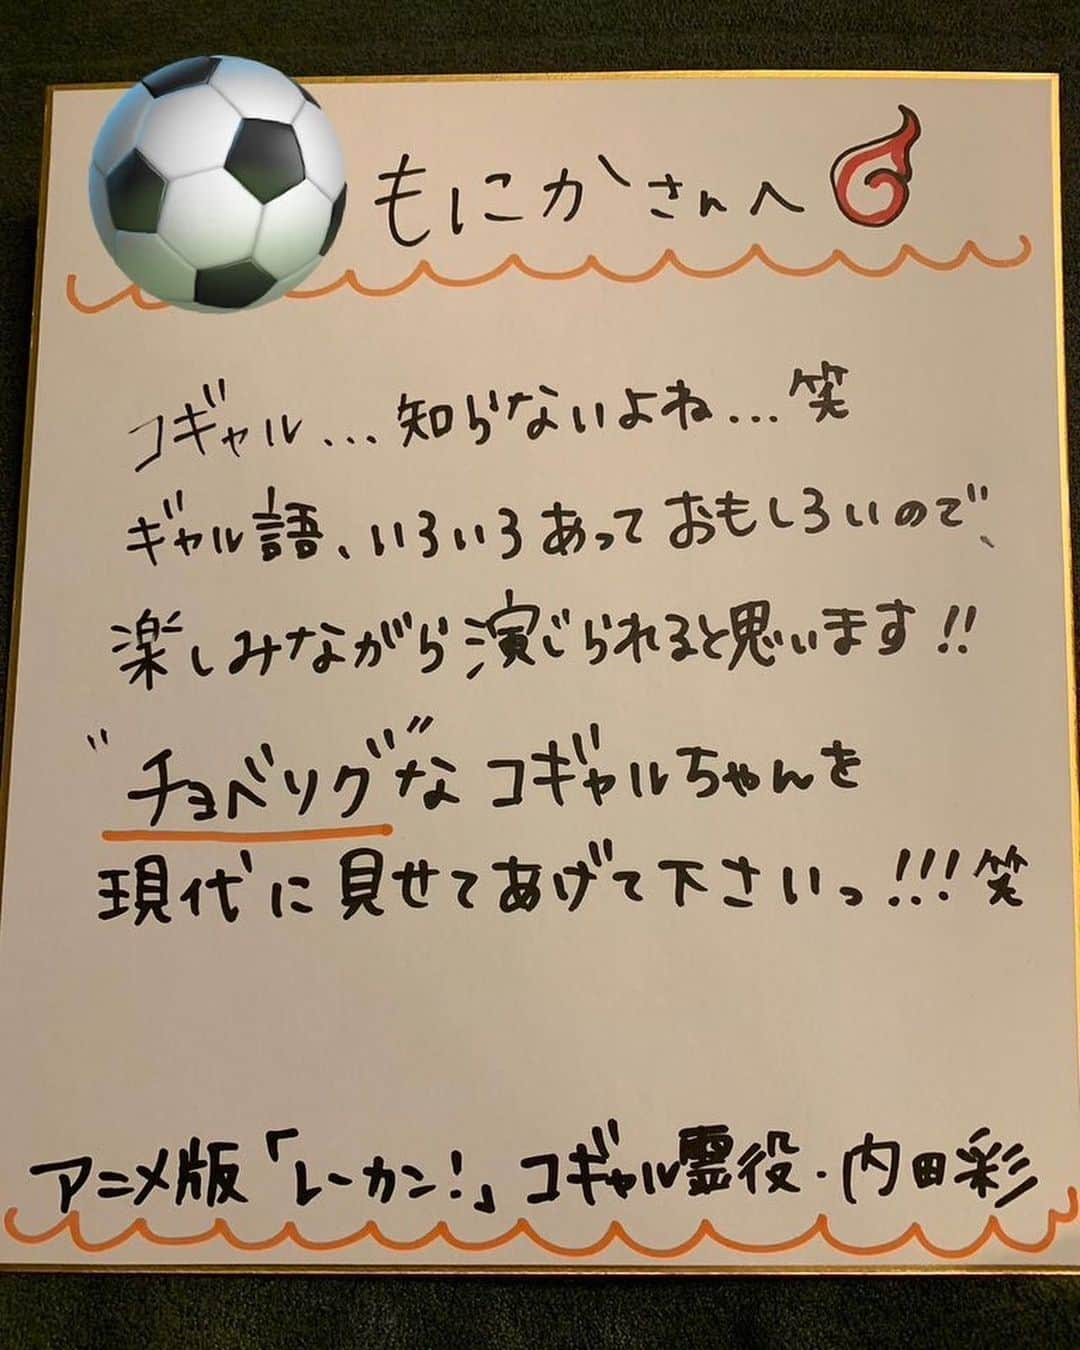 もにかさんへ
コギャル...知らないよね...笑
ギャル語、いろいろあっておもしろいので、
楽しみながら演じられると思います!!
"チョベリグ"なコギャルちゃんを
現代に見せてあげて下さいっ!!!笑
アニメ版「レーカン!」コギャル霊役・内田彩